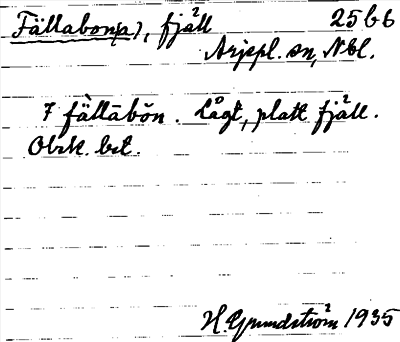 Fällabon(a), fjäll 25 b 6
Arjepl. sn, Nbl.
7 fällābo͝n. Lågt, platt fjäll.
Obek. bet.
H. Grundström 1935